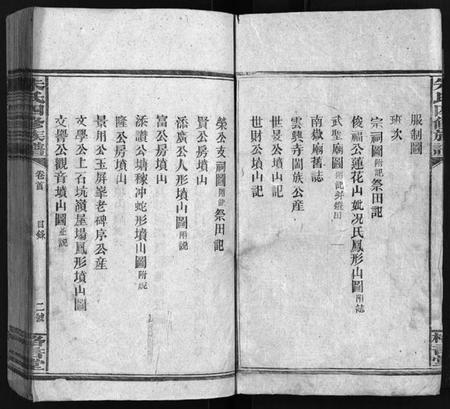 服制圖
班次
宗祠圖附記祭田記
俊福公蓮花山妣况氏鳳形山圖附誌
武聖廟圖附記并鐙田
南嶽廟舊誌
雲興寺閤族公產
世景公墳山記
世財公墳山記
榮公支祠圖附記祭田記
賢公房墳山
添廣公人形墳山圖附說
富公房墳山
添讚公塘稼冲蛇形墳山圖附說
隆公房墳山
景用公玉屏峯老碑序公產
文學公上石坑嶺屋場鳳形墳山圖
文譽公觀音墳山圖並說
朱氏四修族譜
卷首
目錄
二號